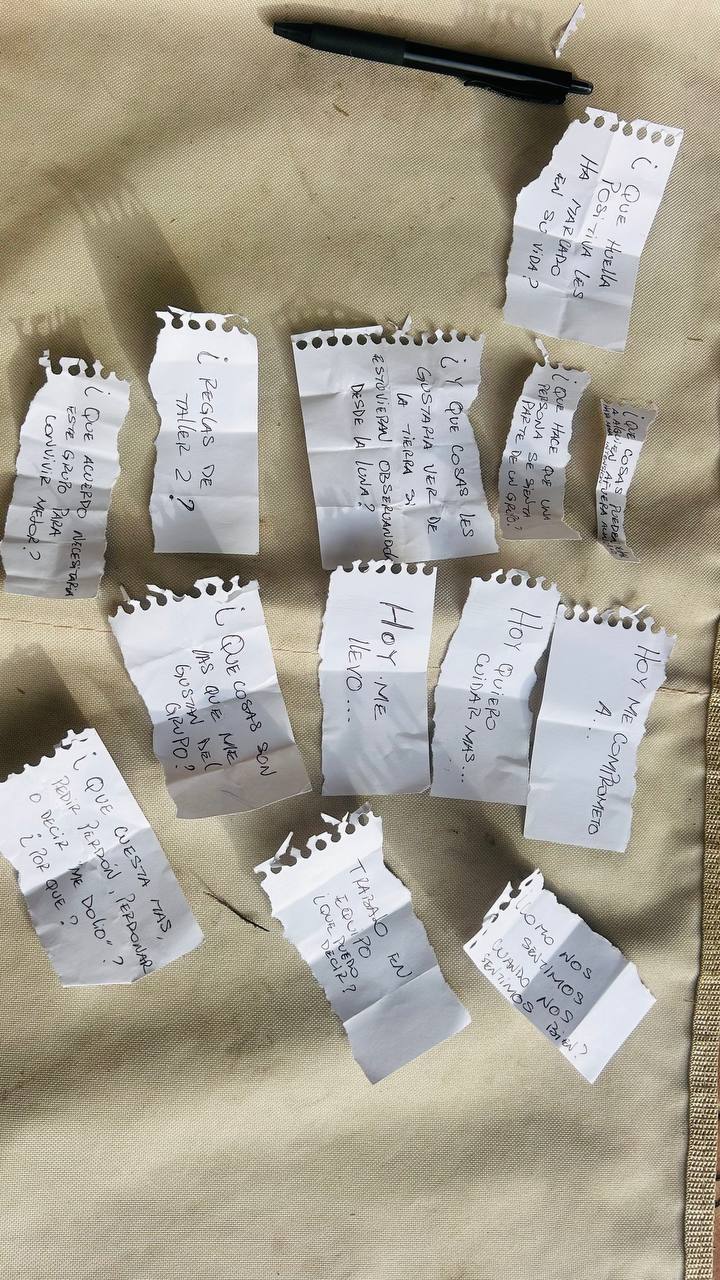 ¿ QUE HUELLA
POSITIVA LES
HA MARCADO
EN SU
VIDA?
¿ QUE COSAS PUEDEN
A ALGUIEN
¿ QUE HACE QUE UNA
PERSONA SE SIENTA
PARTE DE UN GRUPO?
¿ Y QUE COSAS LES
GUSTARIA VER DE
LA TIERRA SI
ESTUVIERAN OBSERVANDO
DESDE LA LUNA?
¿ REGLAS DE
TALLER 2 ?
¿ QUE ACUERDO NECESITARIA
ESTE GRUPO PARA
CONVIVIR MEJOR?
HOY ME COMPROMETO
A...
HOY QUIERO
CUIDAR MAS...
HOY ME
LLEVO...
¿ QUE COSAS SON
LAS QUE ME
GUSTAN DEL
GRUPO?
¿COMO NOS
SENTIMOS
CUANDO NOS
SENTIMOS BIEN?
TRABAJO EN
EQUIPO
¿QUE PUEDO
DECIR?
¿ QUE CUESTA MAS,
PEDIR PERDÓN, PERDONAR
O DECIR "ME DOLIO"?
¿POR QUE?